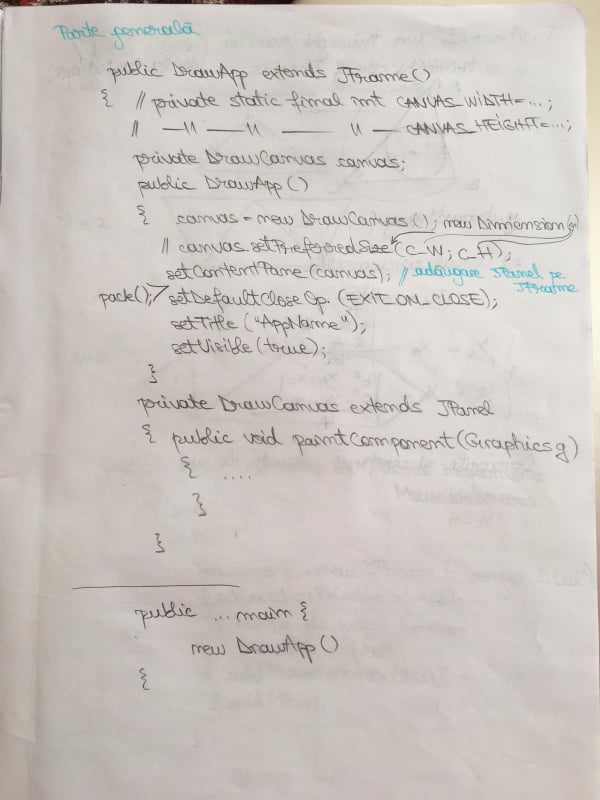 Parte generală
public DrawApp extends JFrame()
{ // private static final int CANVAS_WIDTH=...;
// —11 —— 11 —— 11 — CANVAS_HEIGHT=...;
private DrawCanvas canvas;
public DrawApp()
{ canvas = new DrawCanvas(); new Dimmension(
// canvas.setPreferredSize(C_W; C_H);
setContentPane(canvas); // adăugare JPanel pe
JFrame
pack(); setDefaultCloseOp.(EXIT_ON_CLOSE);
setTitle("AppName");
setVisible(true);
}
private DrawCanvas extends JPanel
{ public void paintComponent(Graphics g)
{ ....
}
}
public ... main {
new DrawApp()
{